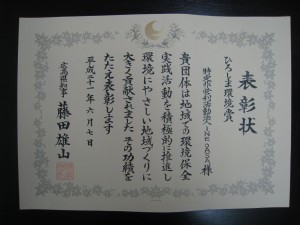 表彰状
ひろしま環境賞
特定非営利活動法人INE OASA 様
貴団体は地域での環境保全
実践活動を積極的に推進し
環境にやさしい地域づくりに
大きく貢献されました その功績を
たたえ表彰します
平成二十一年六月七日
広島県知事 藤田雄山